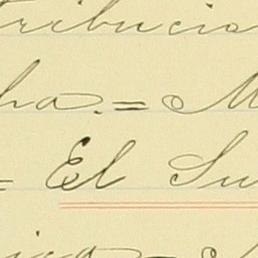 tribucio
ha.= M
= El Su